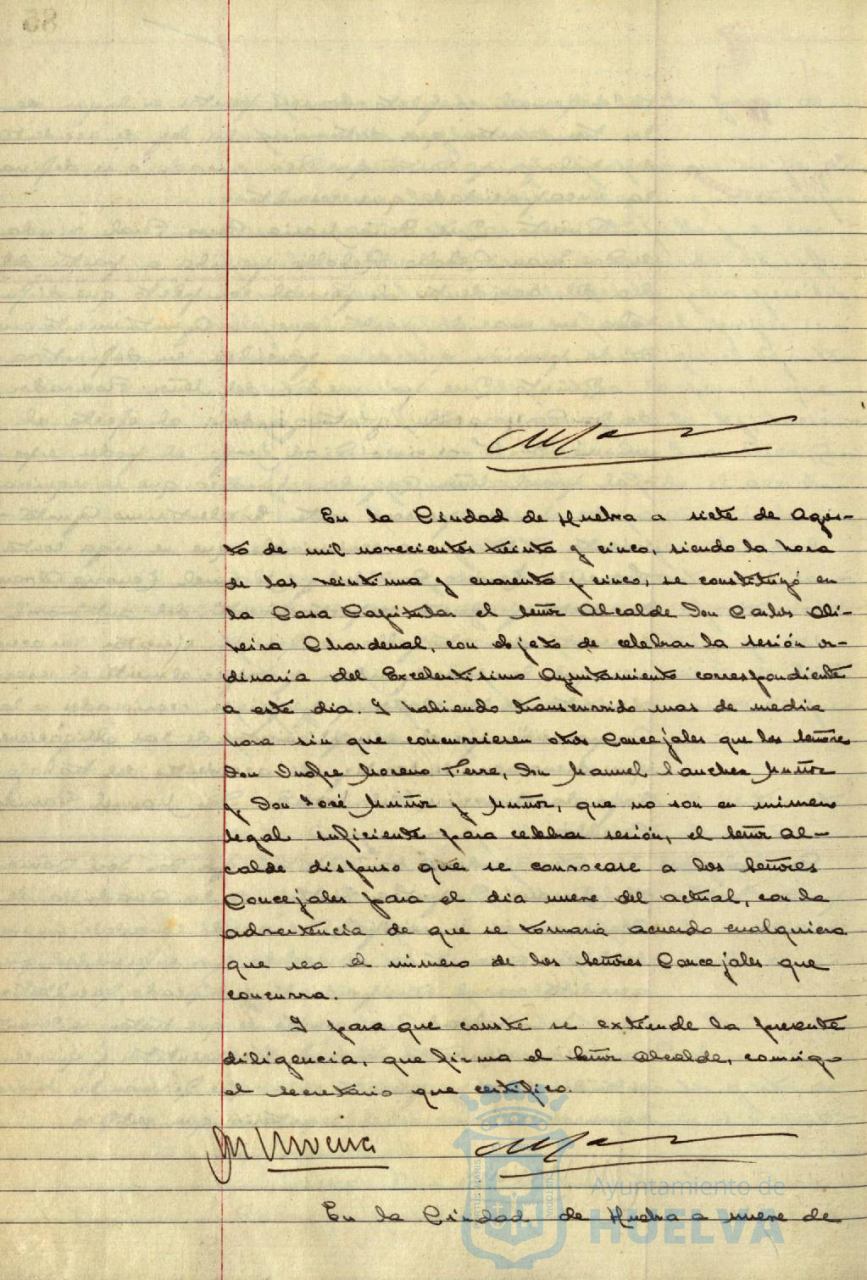 En la Ciudad de Huelva a siete de Agos-
to de mil novecientos treinta y cinco, siendo la hora
de las veintiuna y cuarenta y cinco, se constituyó en
la Casa Capitular el Señor Alcalde Don Carlos Oli-
veira Chardenal, con objeto de celebrar la sesión or-
dinaria del Excelentísimo Ayuntamiento correspondiente
a este dia. Y habiendo transcurrido mas de media
hora sin que concurrieren otros Concejales que los Señores
Don Onofre Moreno Terra, Don Manuel Sanchez Muñoz
y Don José Muñoz y Muñoz, que no son en número
legal suficiente para celebrar sesión, el Señor Al-
calde dispuso que se convocase a los Señores
Concejales para el dia nueve del actual, con la
advertencia de que se tomará acuerdo cualquiera
que sea el número de los Señores Concejales que
concurra.
Y para que conste se extiende la presente
diligencia, que firma el Señor Alcalde, conmigo
el Secretario que certifico.
Oliveira
Ayuntamiento de
HUELVA
En la Ciudad de Huelva a nueve de